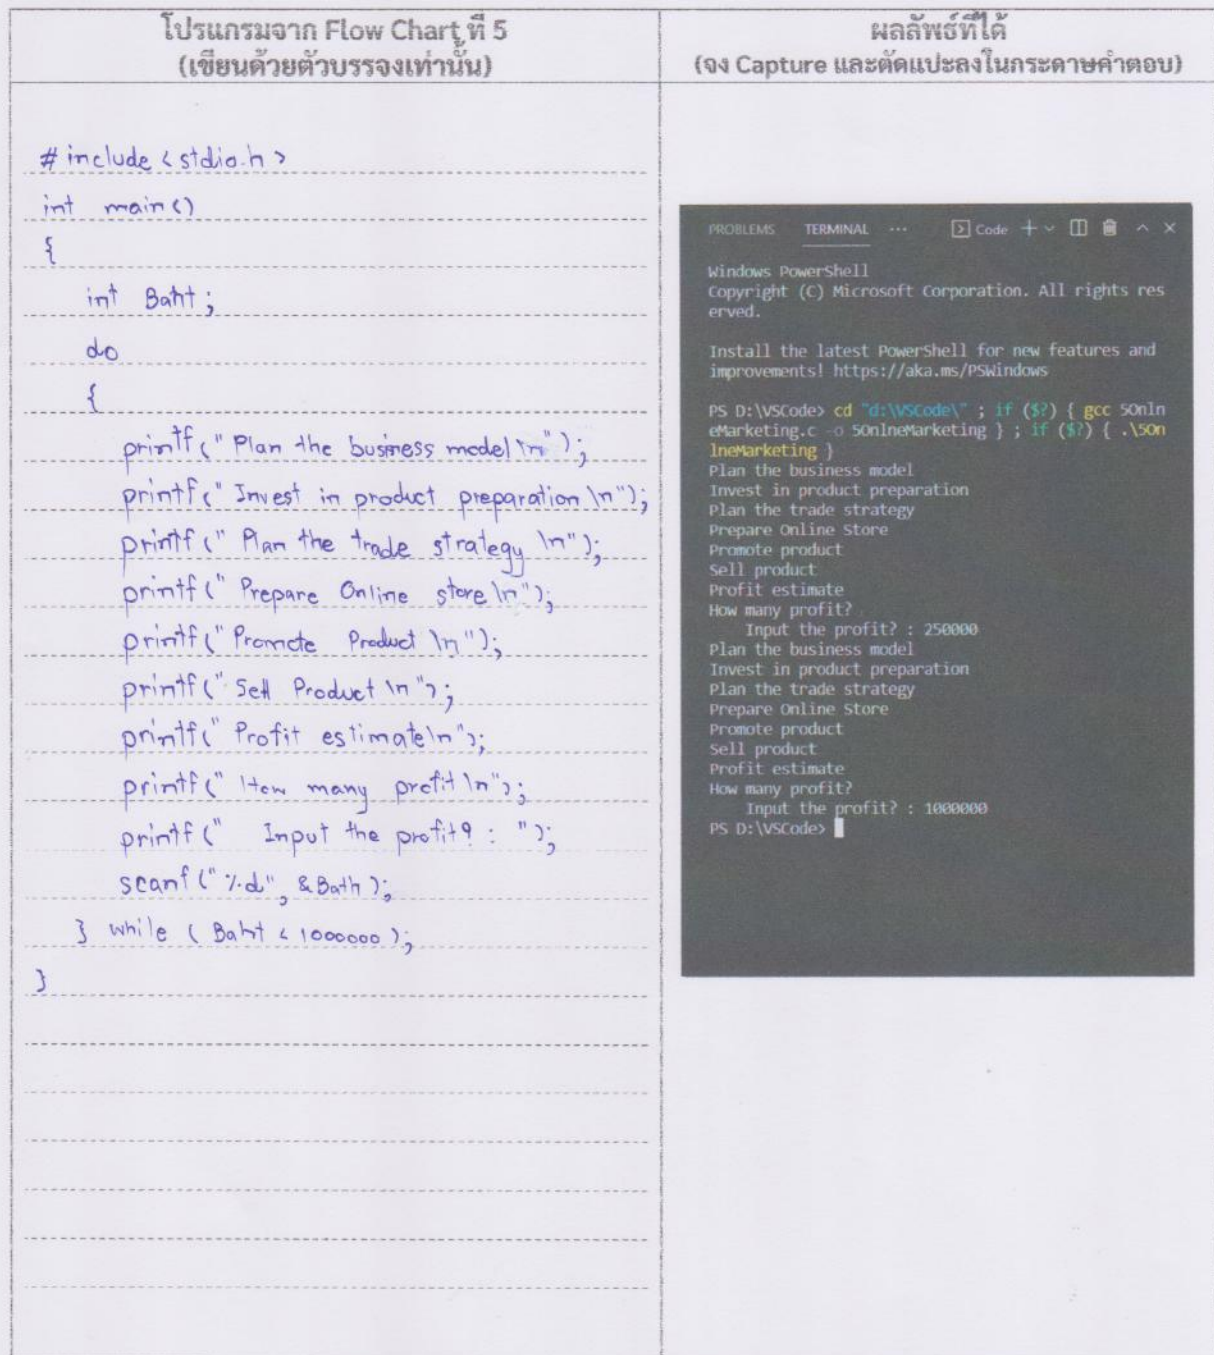 โปรแกรมจาก Flow Chart ที่ 5
(เขียนด้วยตัวบรรจงเท่านั้น)
#include <stdio.h>
int main()
{
int Baht;
do
{
printf(" Plan the business model \n");
printf(" Invest in product preparation \n");
printf(" Plan the trade strategy \n");
printf(" Prepare Online store \n");
printf(" Promote Product \n");
printf(" Sell Product \n");
printf(" Profit estimate\n");
printf(" How many profit \n");
printf(" Input the profit? : ");
scanf("%d", &Bath);
} while ( Baht < 1000000 );
}
ผลลัพธ์ที่ได้
(จง Capture และตัดแปะลงในกระดาษคำตอบ)
PROBLEMS TERMINAL ... Code
Windows PowerShell
Copyright (C) Microsoft Corporation. All rights res
erved.
Install the latest PowerShell for new features and
improvements! https://aka.ms/PSWindows
PS D:\VSCode> cd "d:\VSCode\" ; if ($?) { gcc 5Onln
eMarketing.c -o 5OnlneMarketing } ; if ($?) { .\5On
lneMarketing }
Plan the business model
Invest in product preparation
Plan the trade strategy
Prepare Online Store
Promote product
Sell product
Profit estimate
How many profit?
Input the profit? : 250000
Plan the business model
Invest in product preparation
Plan the trade strategy
Prepare Online Store
Promote product
Sell product
Profit estimate
How many profit?
Input the profit? : 1000000
PS D:\VSCode>